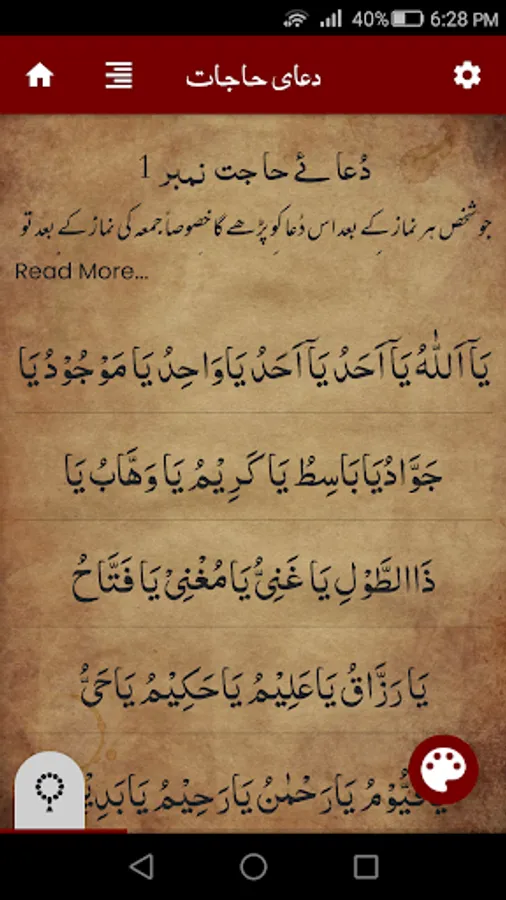 40% 6:28 PM
دعای حاجات
دُعائے حاجت نمبر 1
جو شخص ہر نماز کے بعد اس دُعا کو پڑھے گا خصوصاً جمعہ کی نماز کے بعد تو
Read More...
يَآ اَللّٰهُ يَآ اَحَدُ يَآ اَحَدُ يَا وَاحِدُ يَا مَوْجُوْدُ يَا
جَوَّادُ يَا بَاسِطُ يَا كَرِيْمُ يَا وَهَّابُ يَا
ذَاالطَّوْلِ يَا غَنِىُّ يَا مُغْنِىْ يَا فَتَّاحُ
يَا رَزَّاقُ يَا عَلِيْمُ يَا حَكِيْمُ يَا حَىُّ
يَا قَيُّوْمُ يَا رَحْمٰنُ يَا رَحِيْمُ